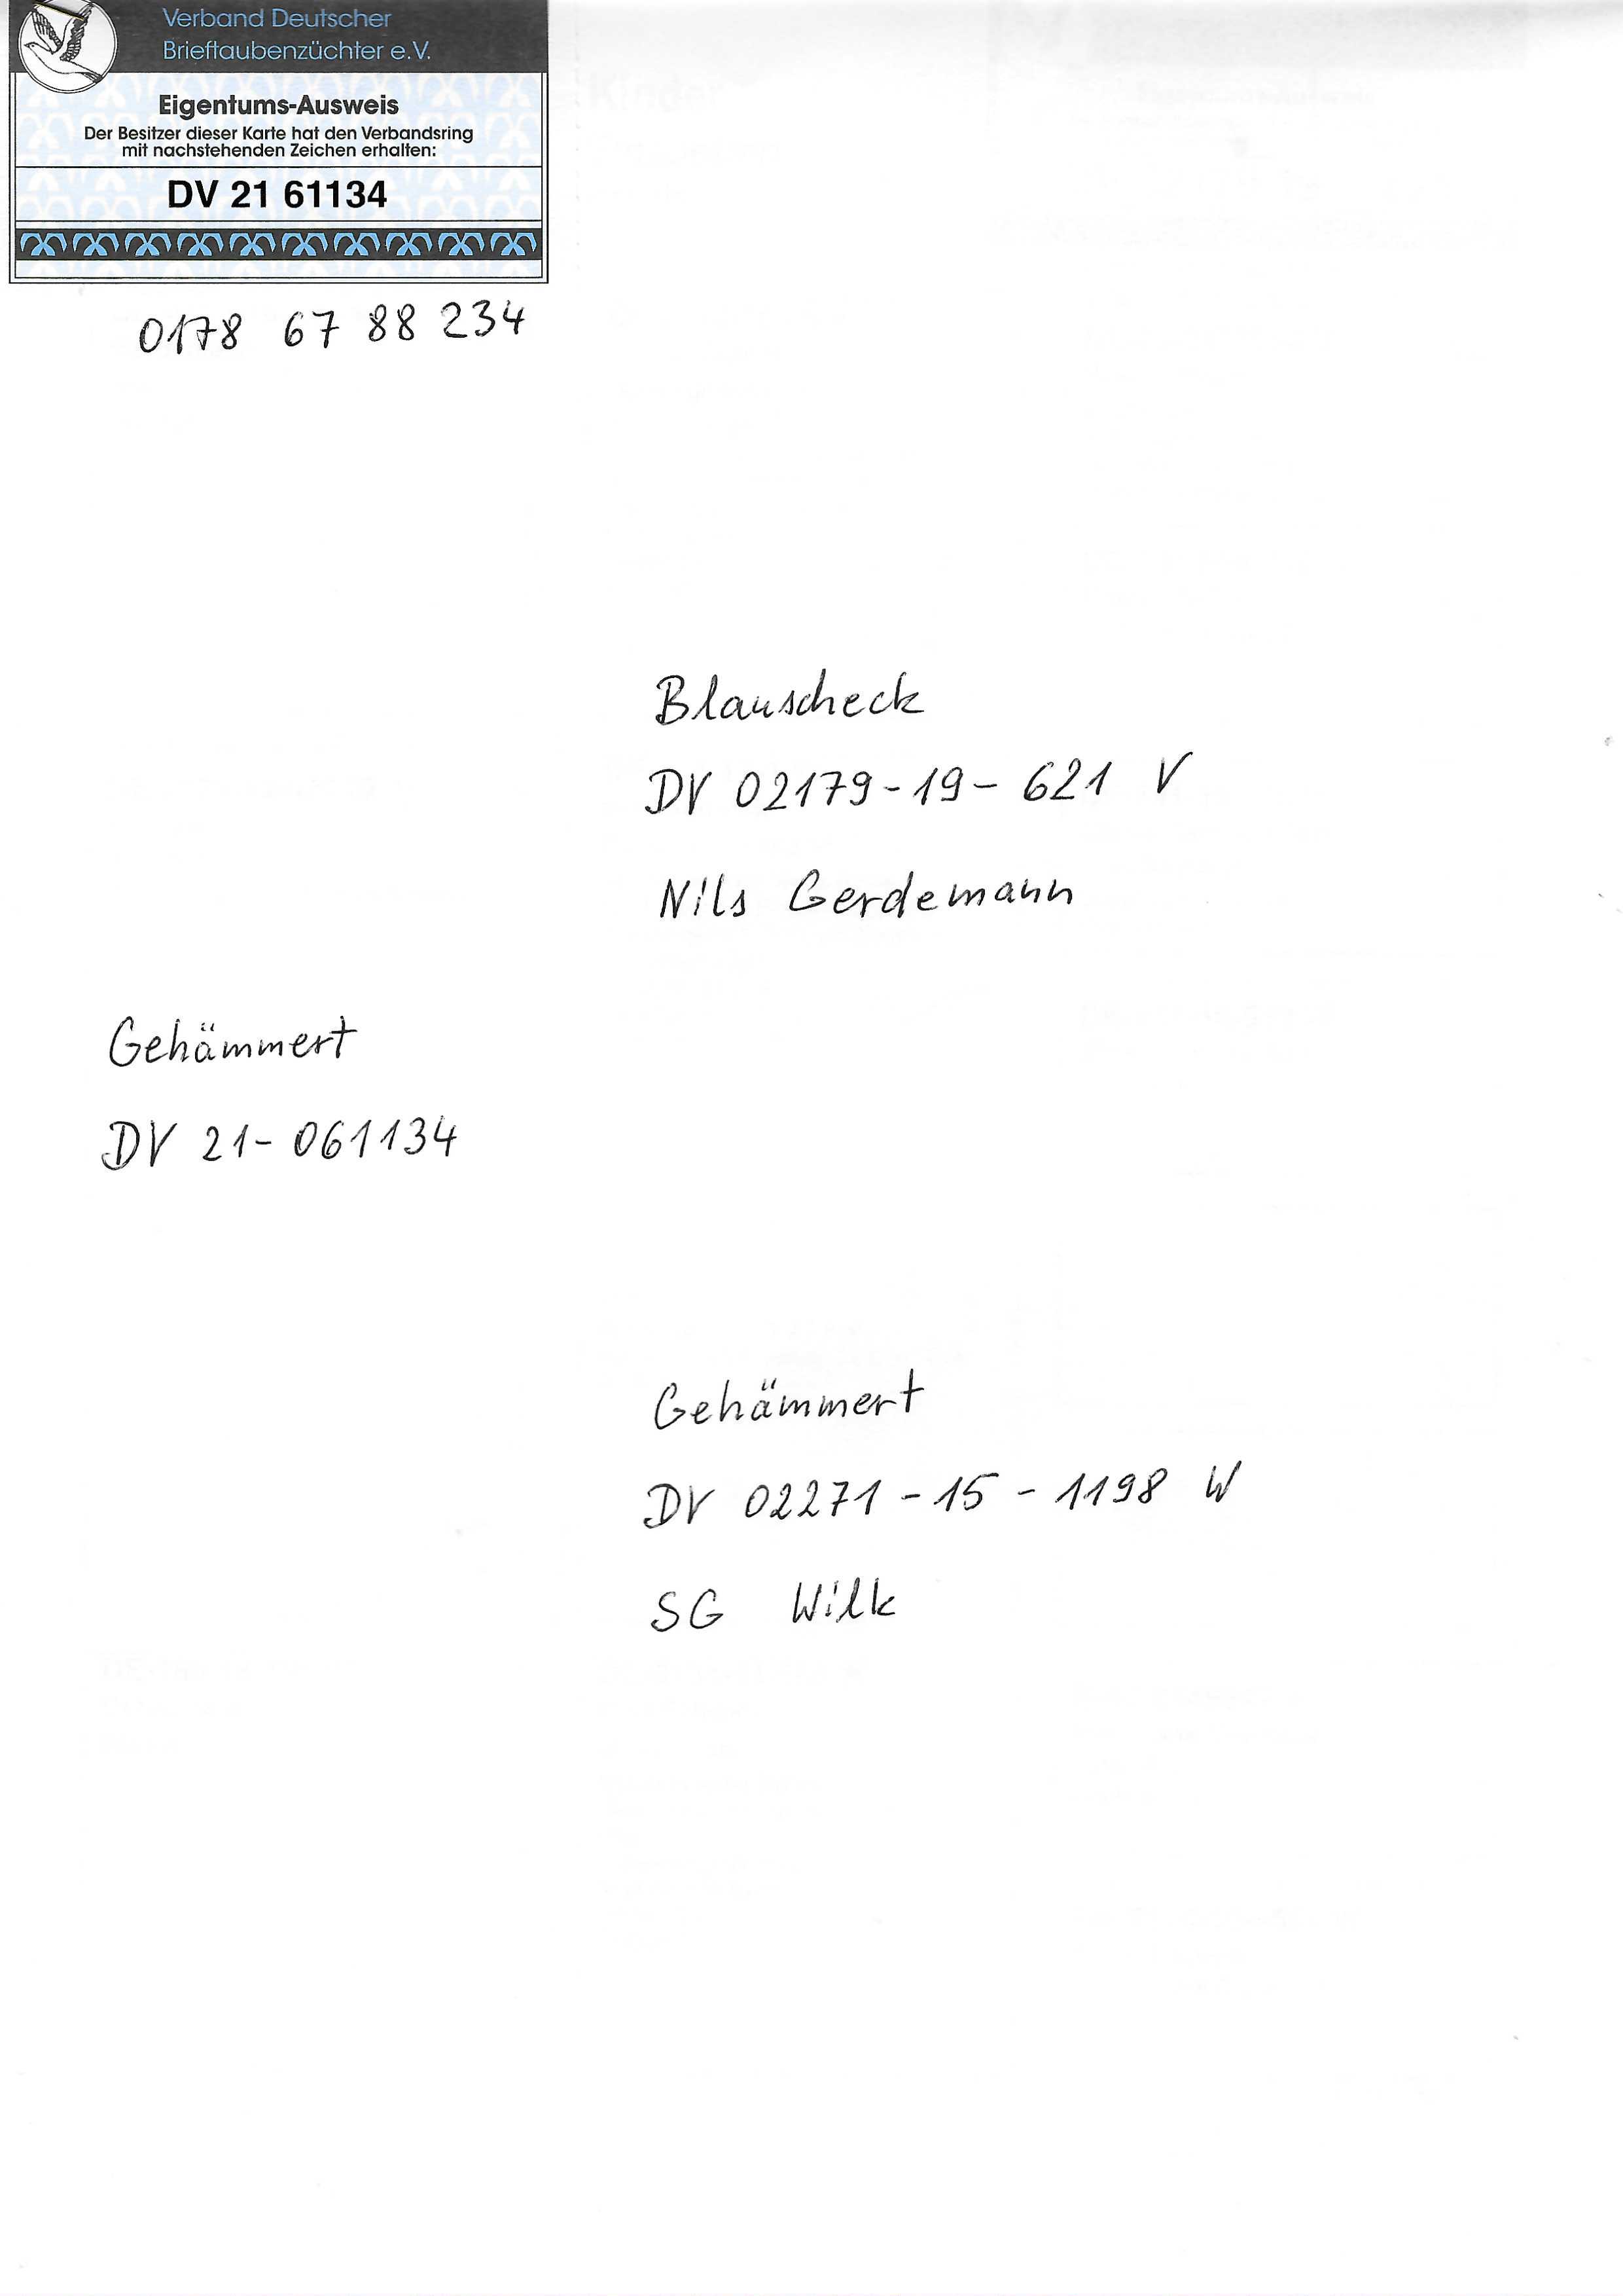 Verband Deutscher
Brieftaubenzüchter e.V.
Eigentums-Ausweis
Der Besitzer dieser Karte hat den Verbandsring
mit nachstehenden Zeichen erhalten:
DV 21 61134
0178 67 88 234
Blauscheck
DV 02179-19-621 V
Nils Gerdemann
Gehämmert
DV 21-061134
Gehämmert
DV 02271-15-1198 W
SG Wilk